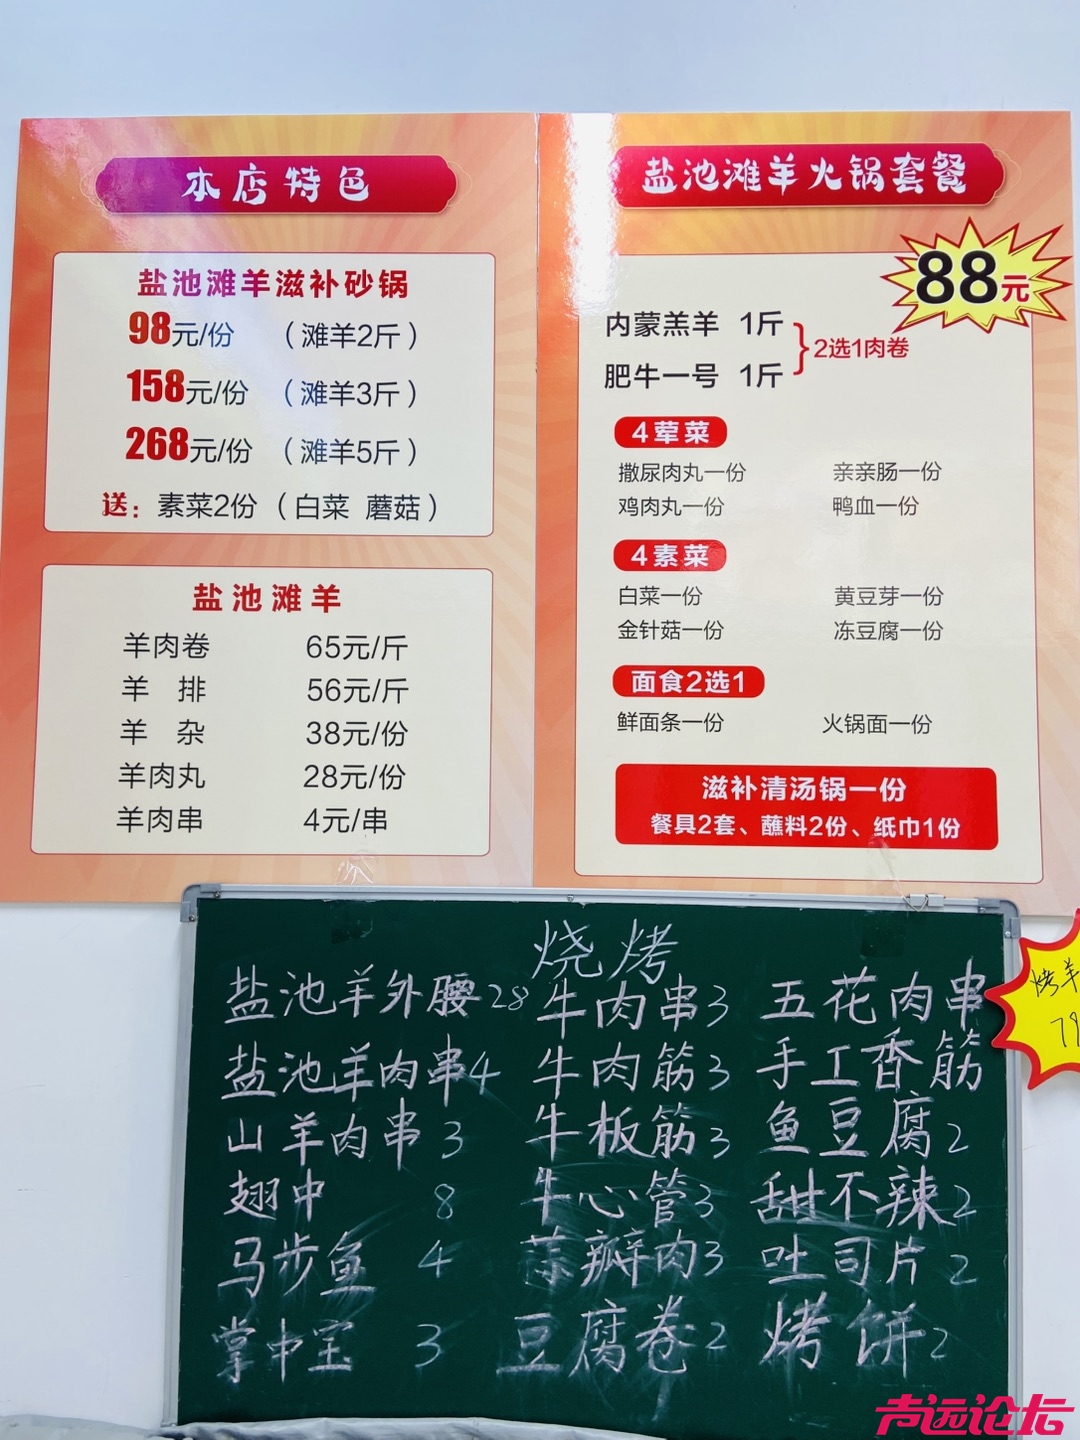 本店特色
盐池滩羊滋补砂锅
98元/份 （滩羊2斤）
158元/份 （滩羊3斤）
268元/份 （滩羊5斤）
送：素菜2份（白菜 蘑菇）
盐池滩羊
羊肉卷 65元/斤
羊 排 56元/斤
羊 杂 38元/份
羊肉丸 28元/份
羊肉串 4元/串
盐池滩羊火锅套餐
88元
内蒙羔羊 1斤
肥牛一号 1斤
2选1肉卷
4荤菜
撒尿肉丸一份 亲亲肠一份
鸡肉丸一份 鸭血一份
4素菜
白菜一份 黄豆芽一份
金针菇一份 冻豆腐一份
面食2选1
鲜面条一份 火锅面一份
滋补清汤锅一份
餐具2套、蘸料2份、纸巾1份
烧烤
盐池羊外腰28 牛肉串3 五花肉串
盐池羊肉串4 牛肉筋3 手工香筋
山羊肉串 3 牛板筋3 鱼豆腐2
翅中 8 牛心管3 甜不辣2
马步鱼 4 蒜瓣肉3 吐司片2
掌中宝 3 豆腐卷2 烤饼2
烤羊
声远论坛